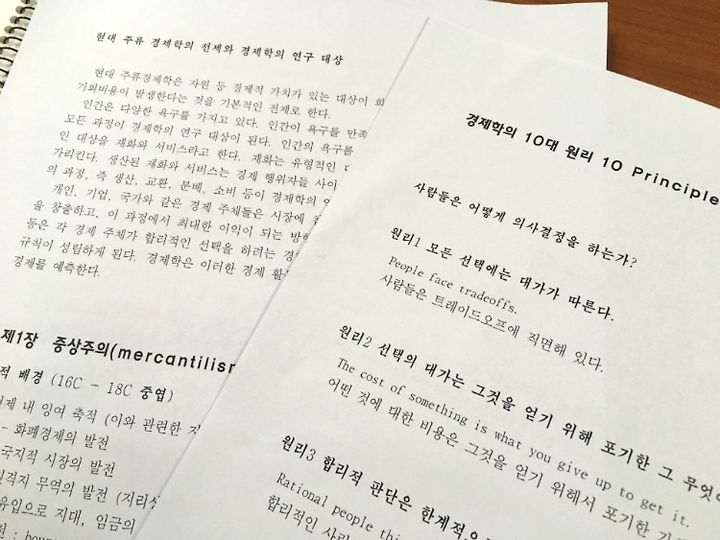 현대 주류 경제학의 전제와 경제학의 연구 대상
현대 주류경제학은 자원 등 경제적 가치가 있는 대상이
기회비용이 발생한다는 것을 기본적인 전제로 한다.
인간은 다양한 욕구를 가지고 있다. 인간이 욕구를 만족
모든 과정이 경제학의 연구 대상이 된다. 인간의 욕구를
인 대상을 재화와 서비스라고 한다. 재화는 유형적인
가리킨다. 생산된 재화와 서비스는 경제 행위자들 사이
의 과정, 즉 생산, 교환, 분배, 소비 등이 경제학의
개인, 기업, 국가와 같은 경제 주체들은 시장에
을 창출하고, 이 과정에서 최대한 이익이 되는
등은 각 경제 주체가 합리적인 선택을 하려는
규칙이 성립하게 된다. 경제학은 이러한 경제
경제를 예측한다.
제1장 중상주의(mercantilism
적 배경 (16C - 18C 중엽)
내 잉여 축적 (이와 관련한
- 화폐경제의 발전
국지적 시장의 발전
원격지 무역의 발전
유입으로 지대, 임금의
경제학의 10대 원리 10 Principle
사람들은 어떻게 의사결정을 하는가?
원리1 모든 선택에는 대가가 따른다.
People face tradeoffs.
사람들은 트레이드오프에 직면해 있다.
원리2 선택의 대가는 그것을 얻기 위해 포기한 그 무엇이
The cost of something is what you give up to get it.
어떤 것에 대한 비용은 그것을 얻기 위해서 포기한
원리3 합리적 판단은 한계적으
Rational people
합리적인